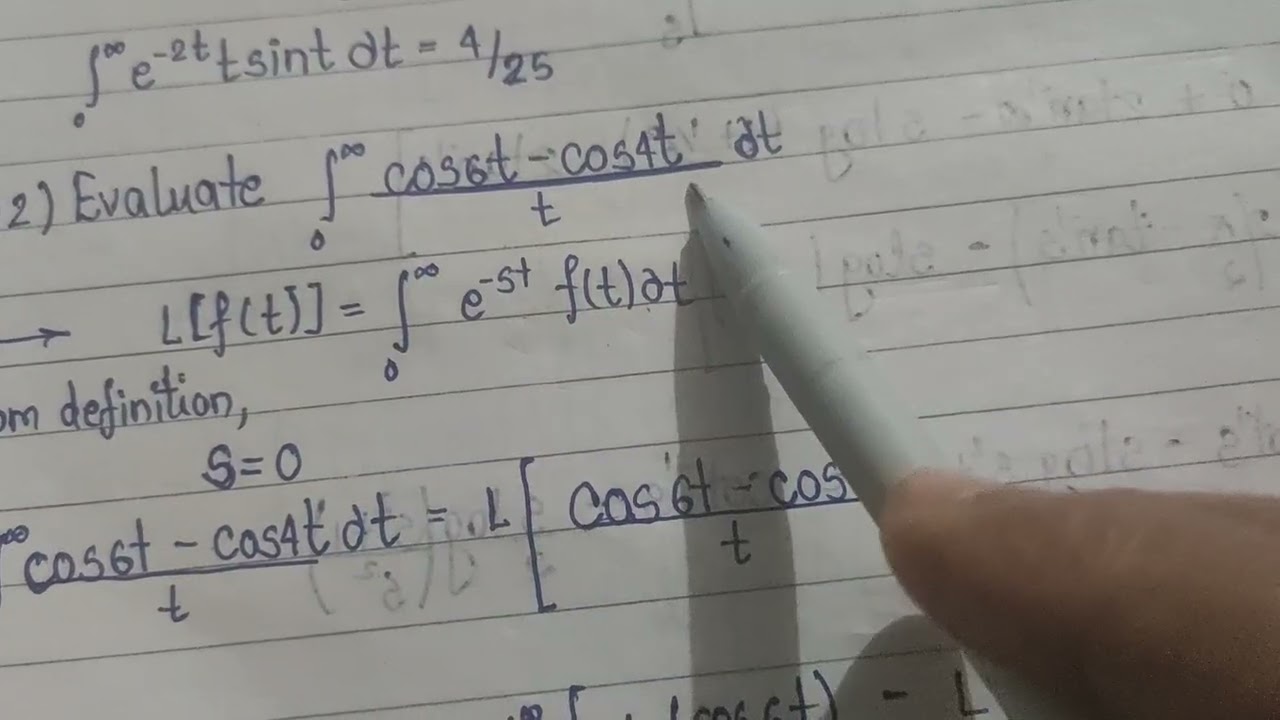 ∫₀^∞ e^{-2t} t sint dt = 4/25
2) Evaluate ∫₀^∞ (cos6t - cos4t)/t dt
→ L[f(t)] = ∫₀^∞ e^{-st} f(t) dt
om definition,
S=0
∞ (cos6t - cos4t)/t dt = L[(cos6t - cos)/t
∞ [ (cos6t) - L